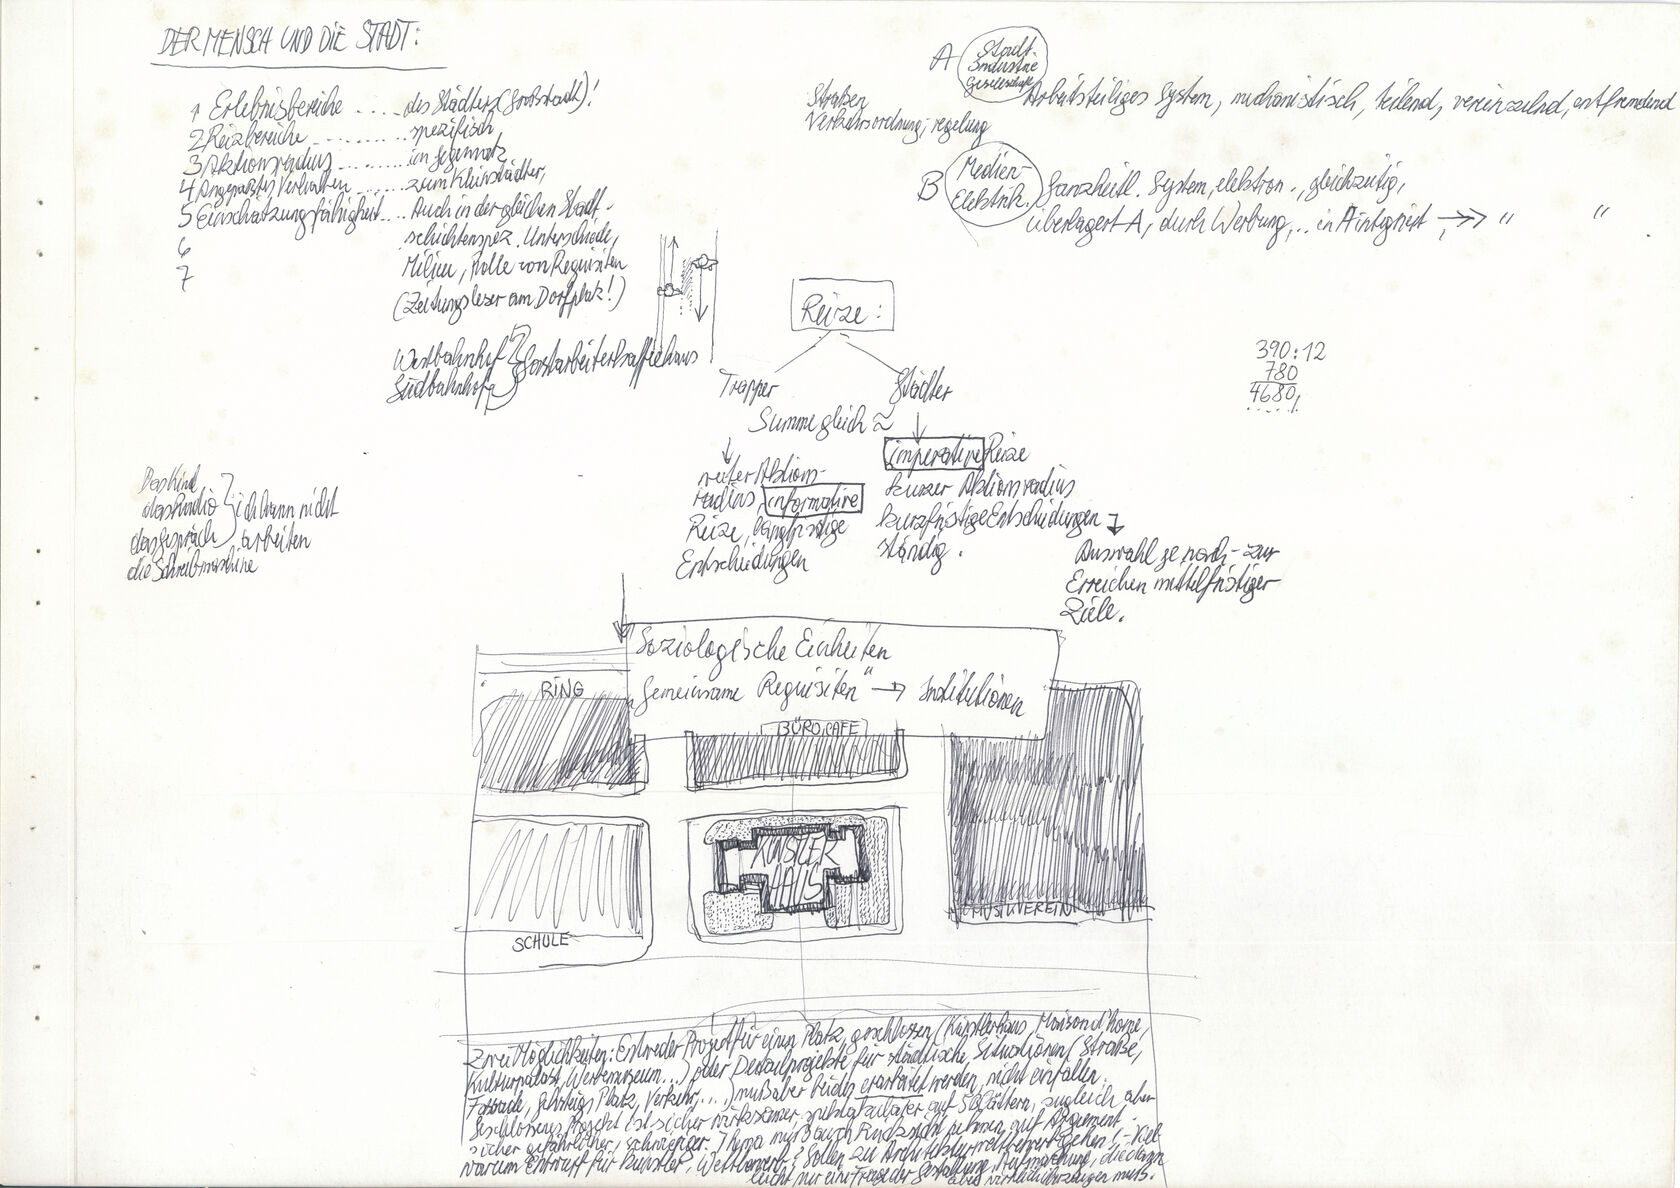 DER MENSCH UND DIE STADT:
1 Erlebnisbereiche .... des Städters (Großstadt)!
2 Reizbereiche ........ spezifisch,
3 Aktionsradius ....... im Gegensatz
4 Angepaßtes Verhalten ..... zum Kleinstädter,
5 Einschätzungsfähigkeit.... Auch in der gleichen Stadt -
6 schichtenspez. Unterschiede,
7 Milieu, Rolle von Requisiten
(Zeitungsleser am Dorfplatz!)
Westbahnhof
Südbahnhof
Gastarbeiterkaffeehaus
A Stadt
Industrie
Gesellschaft
Arbeitsteiliges System, mechanistisch, teilend, vereinzelnd, entfremdend
Straßen
Verkehrsordnung, regelung
B Medien-
Elektrik.
Ganzheitl. System, elektron., gleichzeitig,
überlagert A, durch Werbung,.. in A integriert → " "
Reize:
Trapper Städter
Summe gleich ≈
weiter Aktions-
radius, informative
Reize, langfristige
Entscheidungen
imperative Reize
kurzer Aktionsradius
kurzfristige Entscheidungen
ständig.
Auswahl je nach - zur
Erreichen mittelfristiger
Ziele.
390:12
780
4680,
Das Kind
das Radio
das Gespräch
die Schreibmaschine
ich kann nicht
arbeiten
Soziologische Einheiten
"Gemeinsame Requisiten" → Institutionen
RING
BÜRO, CAFE
KÜNSTLER
HAUS
MUSIKVEREIN
SCHULE
Zwei Möglichkeiten: Entweder Projekt für einen Platz, geschlossen (Künstlerhaus, Maison d'homme,
Kulturpalast, Werbemuseum...) oder Detailprojekte für städtische Situationen (Straße,
Fassade, Gehsteig, Platz, Verkehr,...) muß aber beides erarbeitet werden, nicht einfallen.
Geschlossenes Projekt ist sicher wirksamer, spektakulärer auf 5 Blättern, zugleich aber
sicher gefährlicher, schwieriger. Thema muß auch Rücksicht nehmen, auf Argument -
warum Entwurf für Künstler, Wettbewerb? Sollen zu Architekturwettbewerb gehen! - Viel-
leicht nur eine Frage der Gestaltung, Aufmachung, die dann
aber wirklich überzeugen muß.